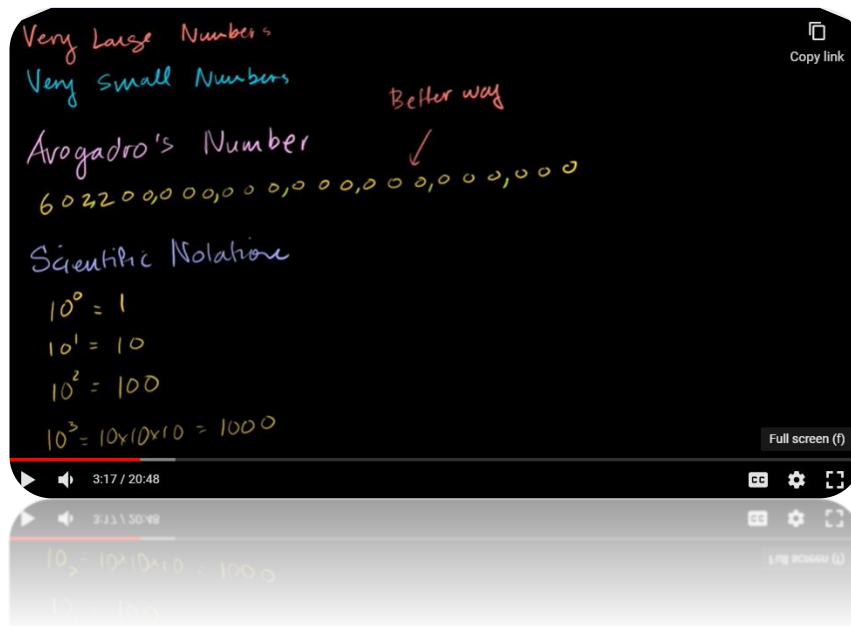 Very Large Numbers
Copy link
Very Small Numbers
Better way
Avogadro's Number
602,200,000,000,000,000,000,000
Scientific Notation
10⁰ = 1
10¹ = 10
10² = 100
10³ = 10x10x10 = 1000
Full screen (f)
3:17 / 20:48
CC